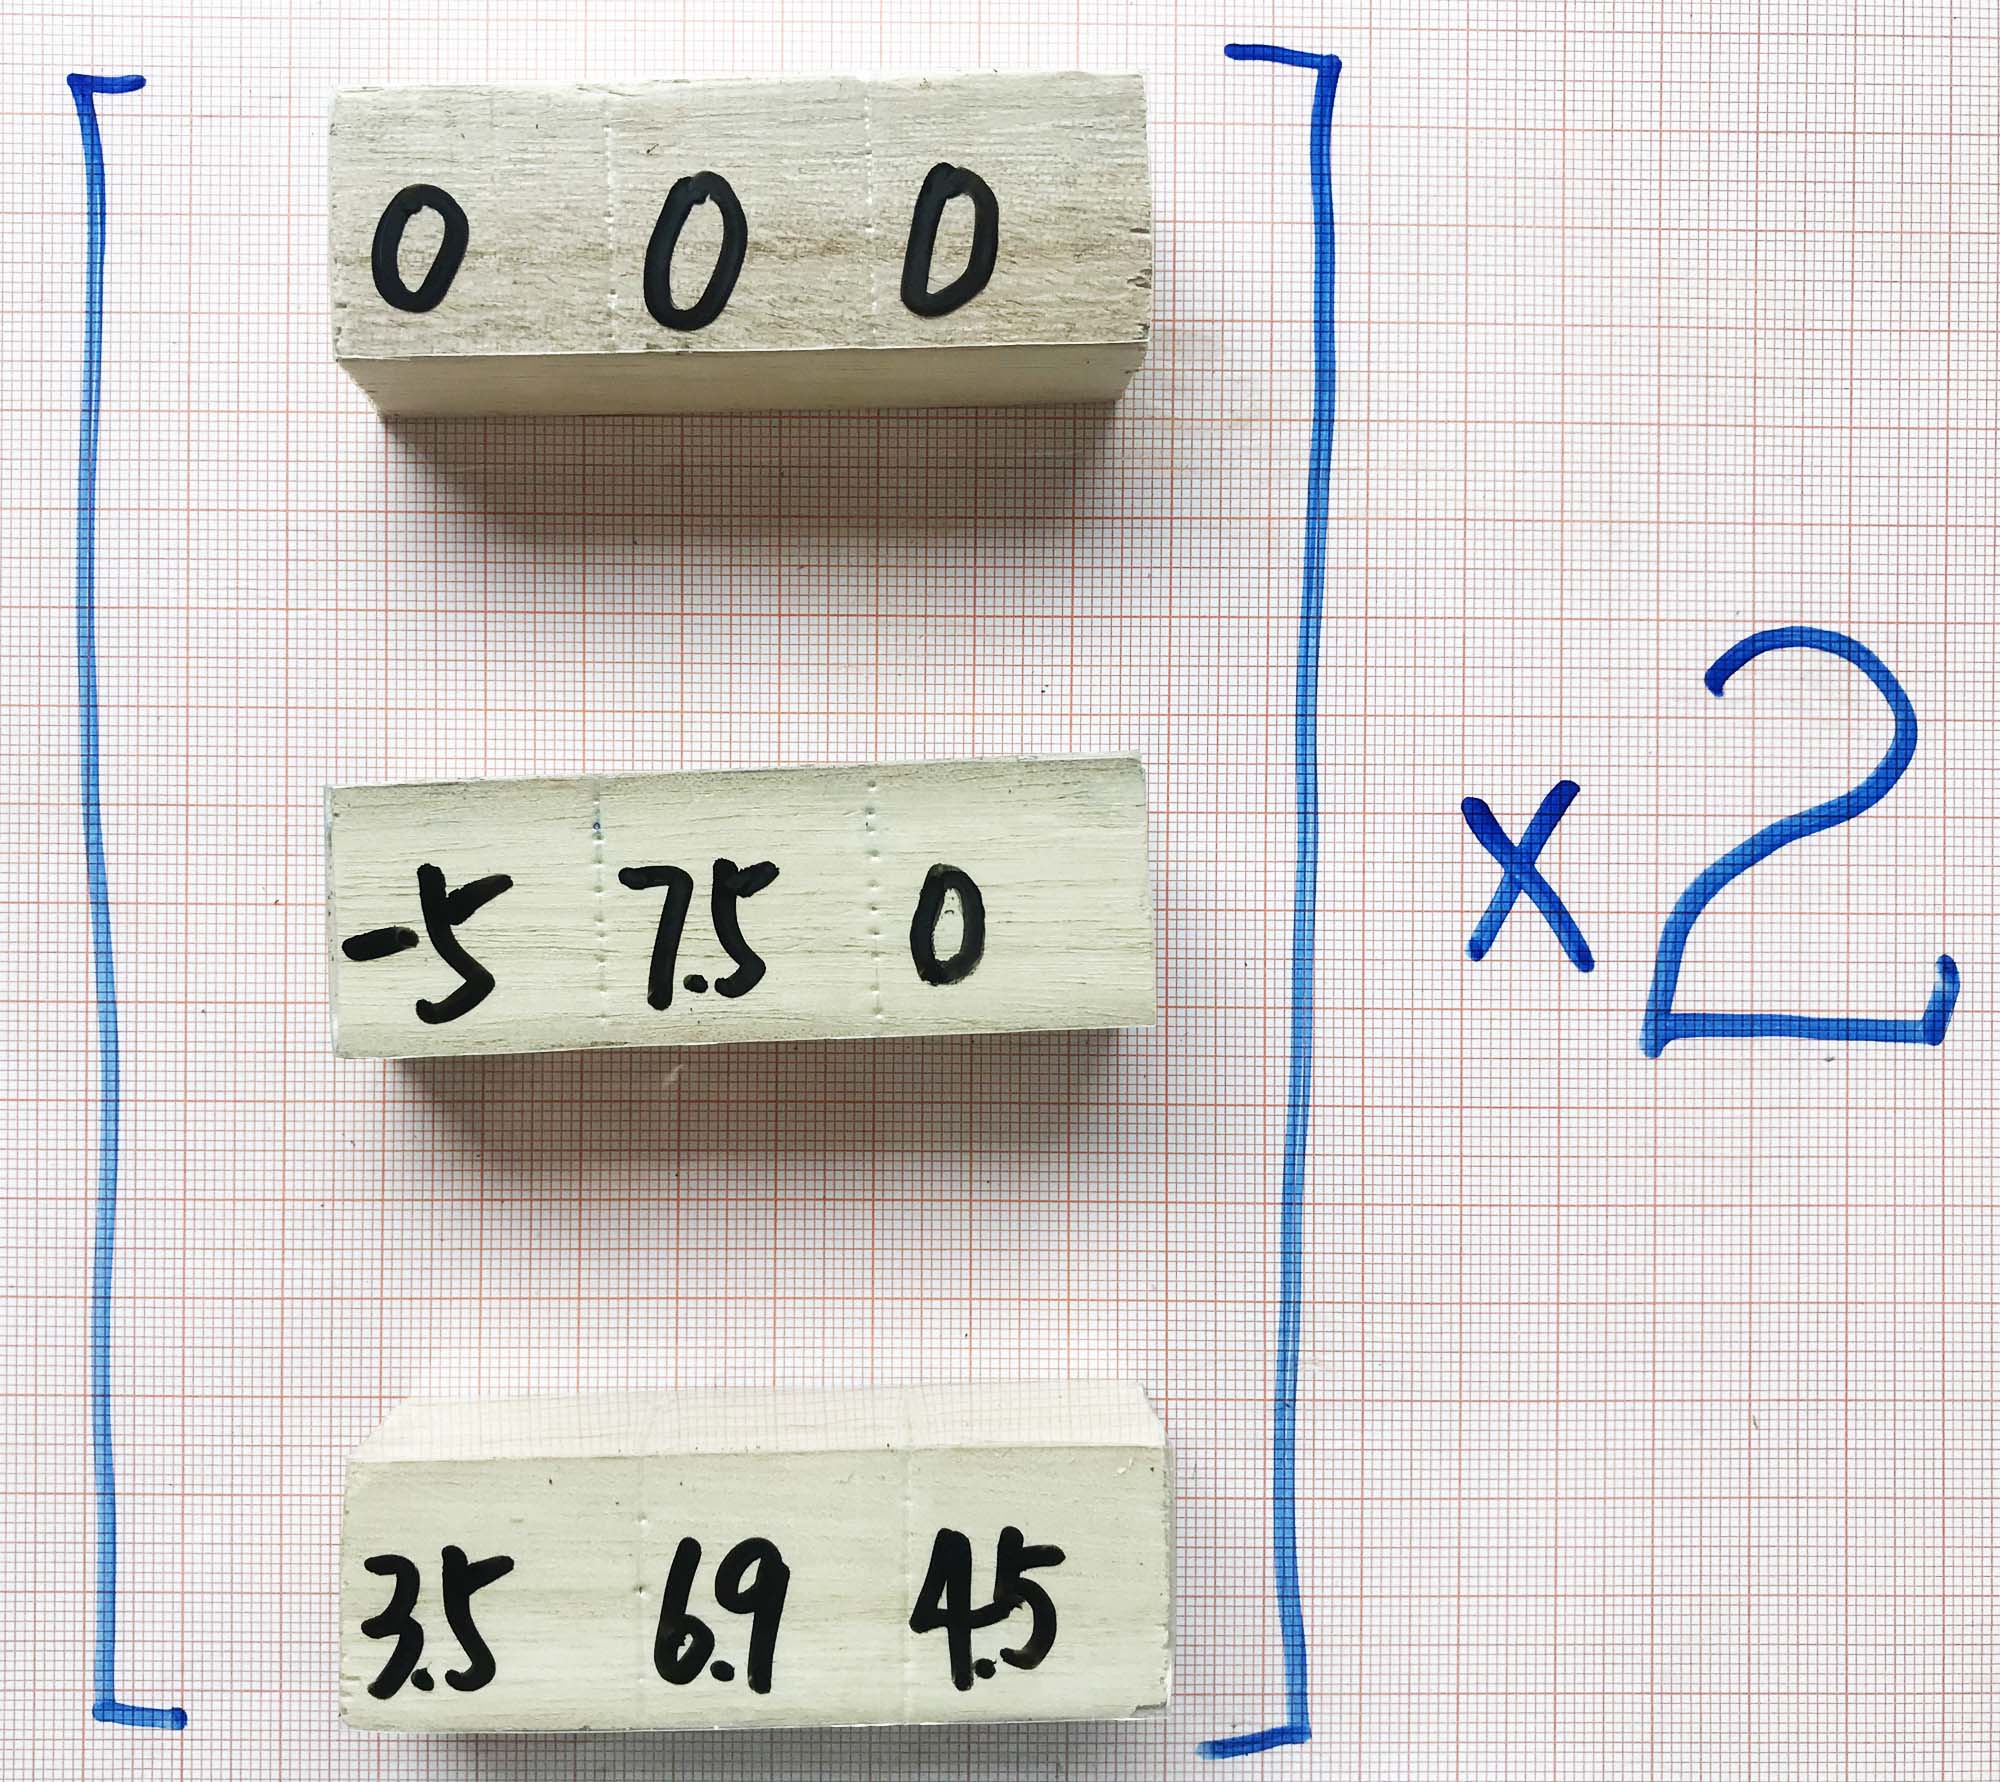 0 0 0
-5 7.5 0
3.5 6.9 4.5
x 2